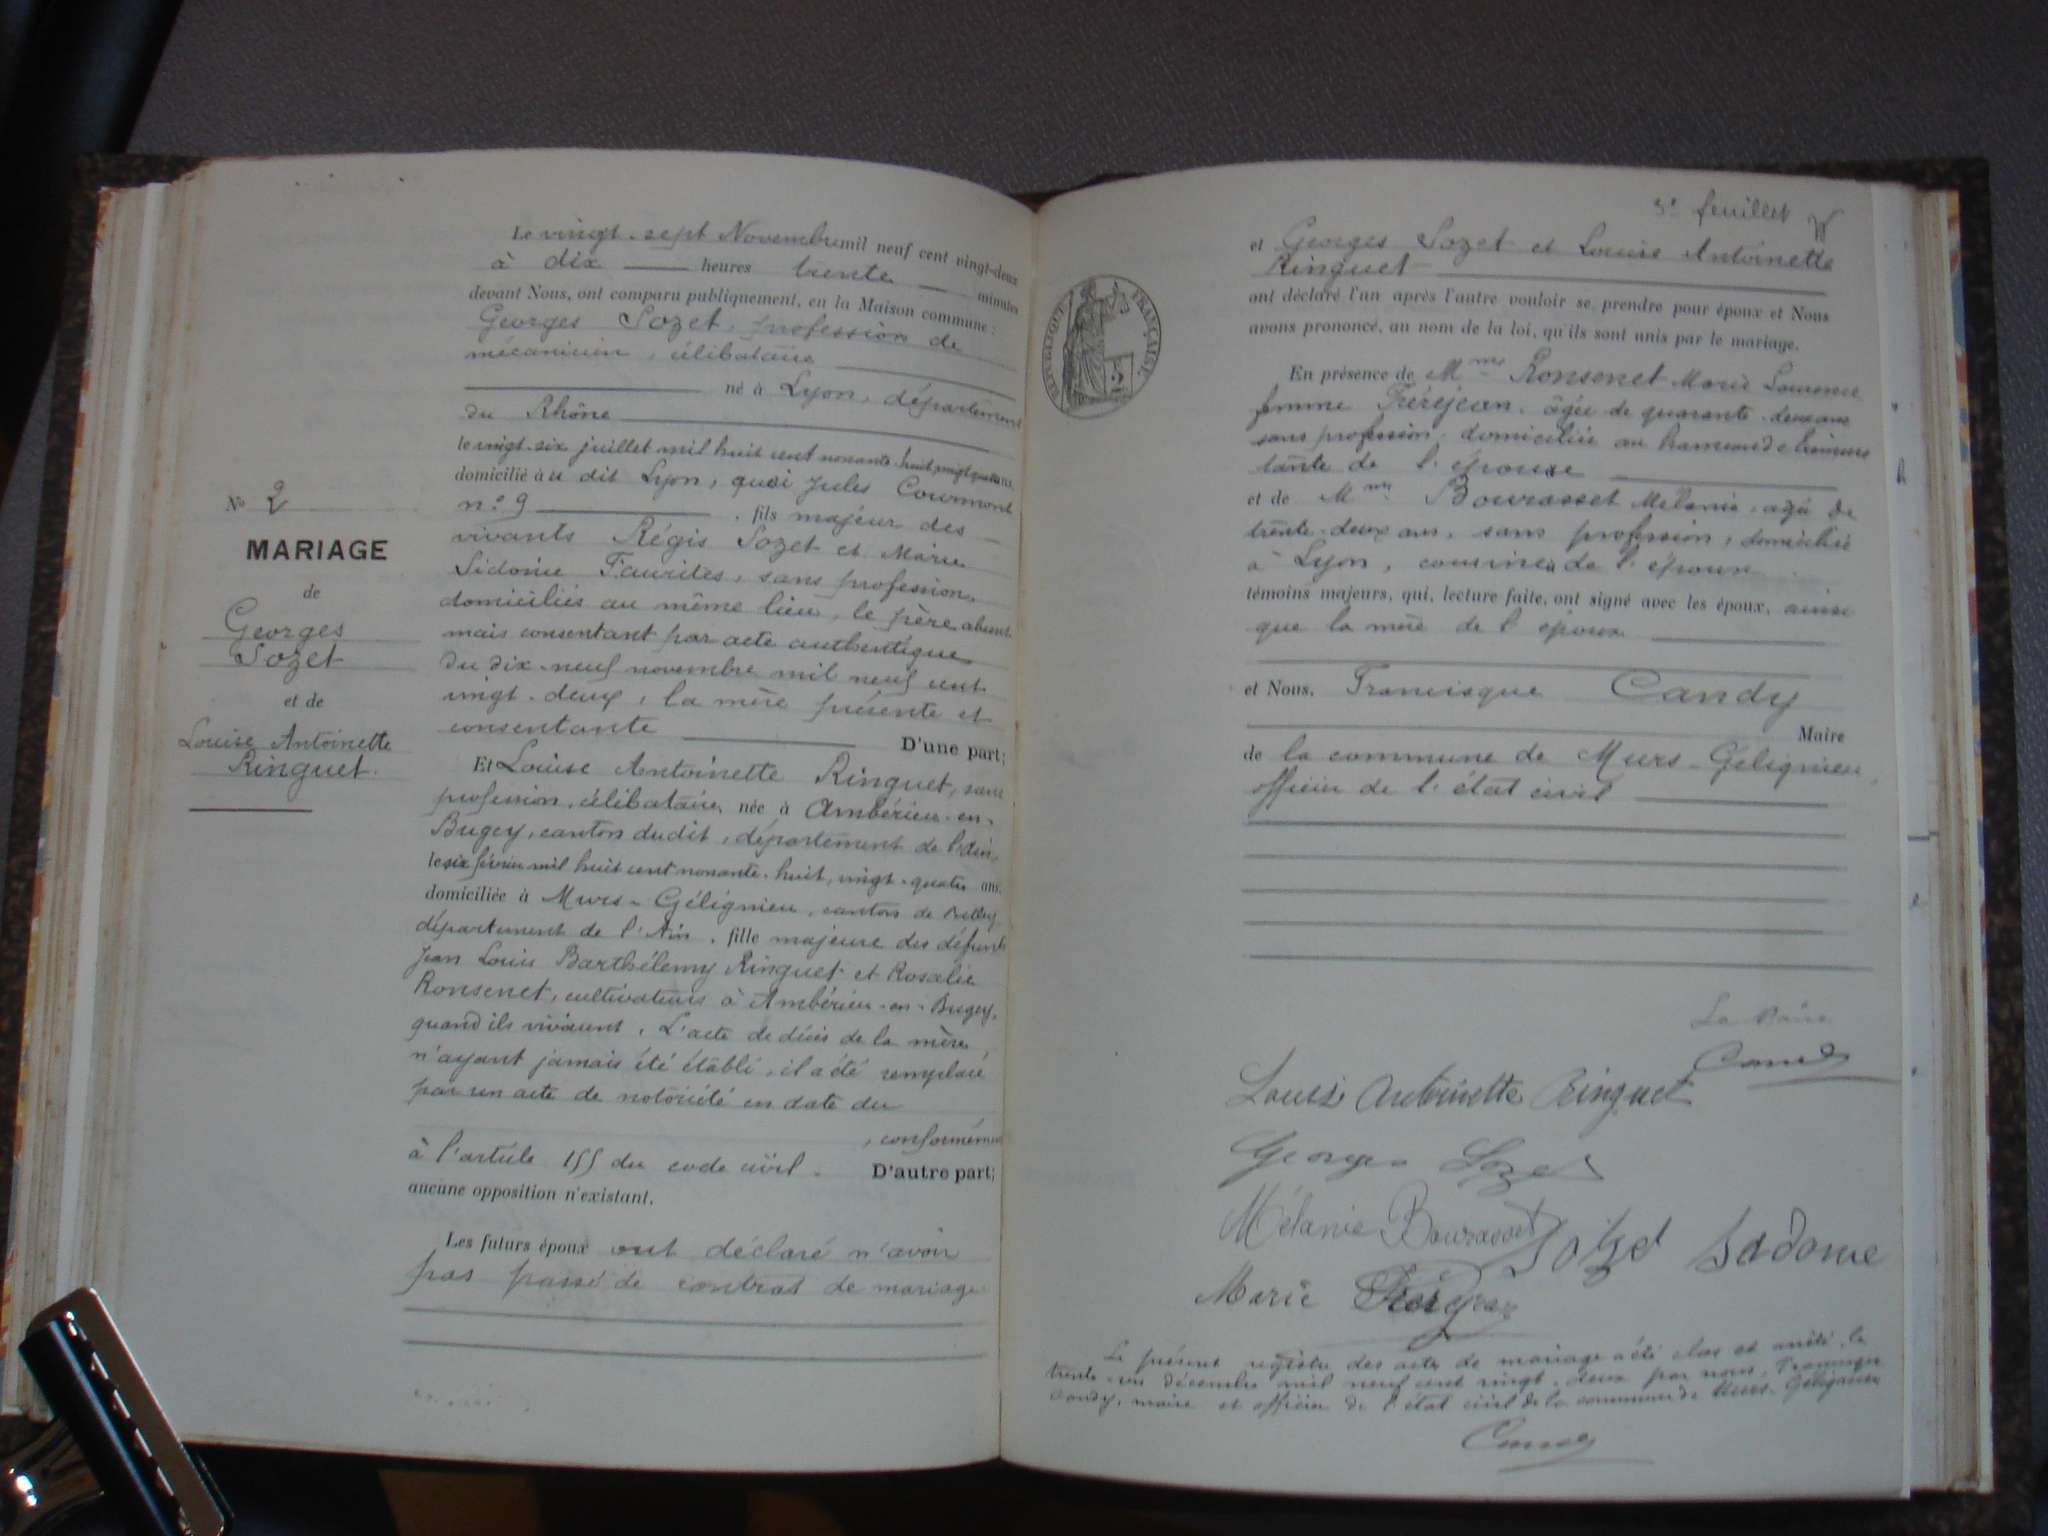 Le vingt-sept Novembre mil neuf cent vingt-deux
à dix heures trente minutes
devant Nous, ont comparu publiquement, en la Maison commune :
Georges Sozet, profession de
mécanicien, célibataire
né à Lyon, département
du Rhône
le vingt-six juillet mil huit cent nonante-huit, vingt quatre ans,
domicilié au dit Lyon, quai Jules Courmont
n° 9, fils majeur des
vivants Régis Sozet et Marie
Sidonie Faurites, sans profession,
domiciliés au même lieu, le père absent
mais consentant par acte authentique
du dix-neuf novembre mil neuf cent
vingt-deux, la mère présente et
consentante D'une part;
Et Louise Antoinette Ringuet, sans
profession, célibataire, née à Ambérieu-en-
Bugey, canton dudit, département de l'Ain,
le six février mil huit cent nonante-huit, vingt-quatre ans,
domiciliée à Murs-Gélignieu, canton de Belley
département de l'Ain, fille majeure des défunts
Jean Louis Barthélemy Ringuet et Rosalie
Ronsenet, cultivateurs à Ambérieu-en-Bugey,
quand ils vivaient. L'acte de décès de la mère
n'ayant jamais été établi, il a été remplacé
par un acte de notoriété en date du
, conformément
à l'article 155 du code civil. D'autre part;
aucune opposition n'existant.
Les futurs époux ont déclaré n'avoir
pas passé de contrat de mariage
N° 2
MARIAGE
de
Georges
Sozet
et de
Louise Antoinette
Ringuet.
3e feuillet
RÉPUBLIQUE FRANÇAISE
et Georges Sozet et Louise Antoinette
Ringuet
ont déclaré l'un après l'autre vouloir se prendre pour époux et Nous
avons prononcé, au nom de la loi, qu'ils sont unis par le mariage.
En présence de Mme Ronsenet Marie Laurence
femme Fréréjean, âgée de quarante-deux ans
sans profession, domiciliée au hameau de
tante de l'épouse
et de Mme Bourasset Mélanie, agée de
trente-deux ans, sans profession, domiciliée
à Lyon, cousine de l'époux
témoins majeurs, qui, lecture faite, ont signé avec les époux, ainsi
que la mère de l'époux
et Nous, Francisque Candy
Maire
de la commune de Murs-Gélignieu,
officier de l'état civil
Le Maire
Candy
Louise Antoinette Ringuet
Georges Sozet
Mélanie Bourasset Sozet Sadonie
Marie Fréréjean
Le présent registre des actes de mariage a été clos et arrêté, le
trente-un décembre mil neuf cent vingt-deux par nous, Francisque
Candy, maire et officier de l'état civil de la commune de Murs-Gélignieu
Candy